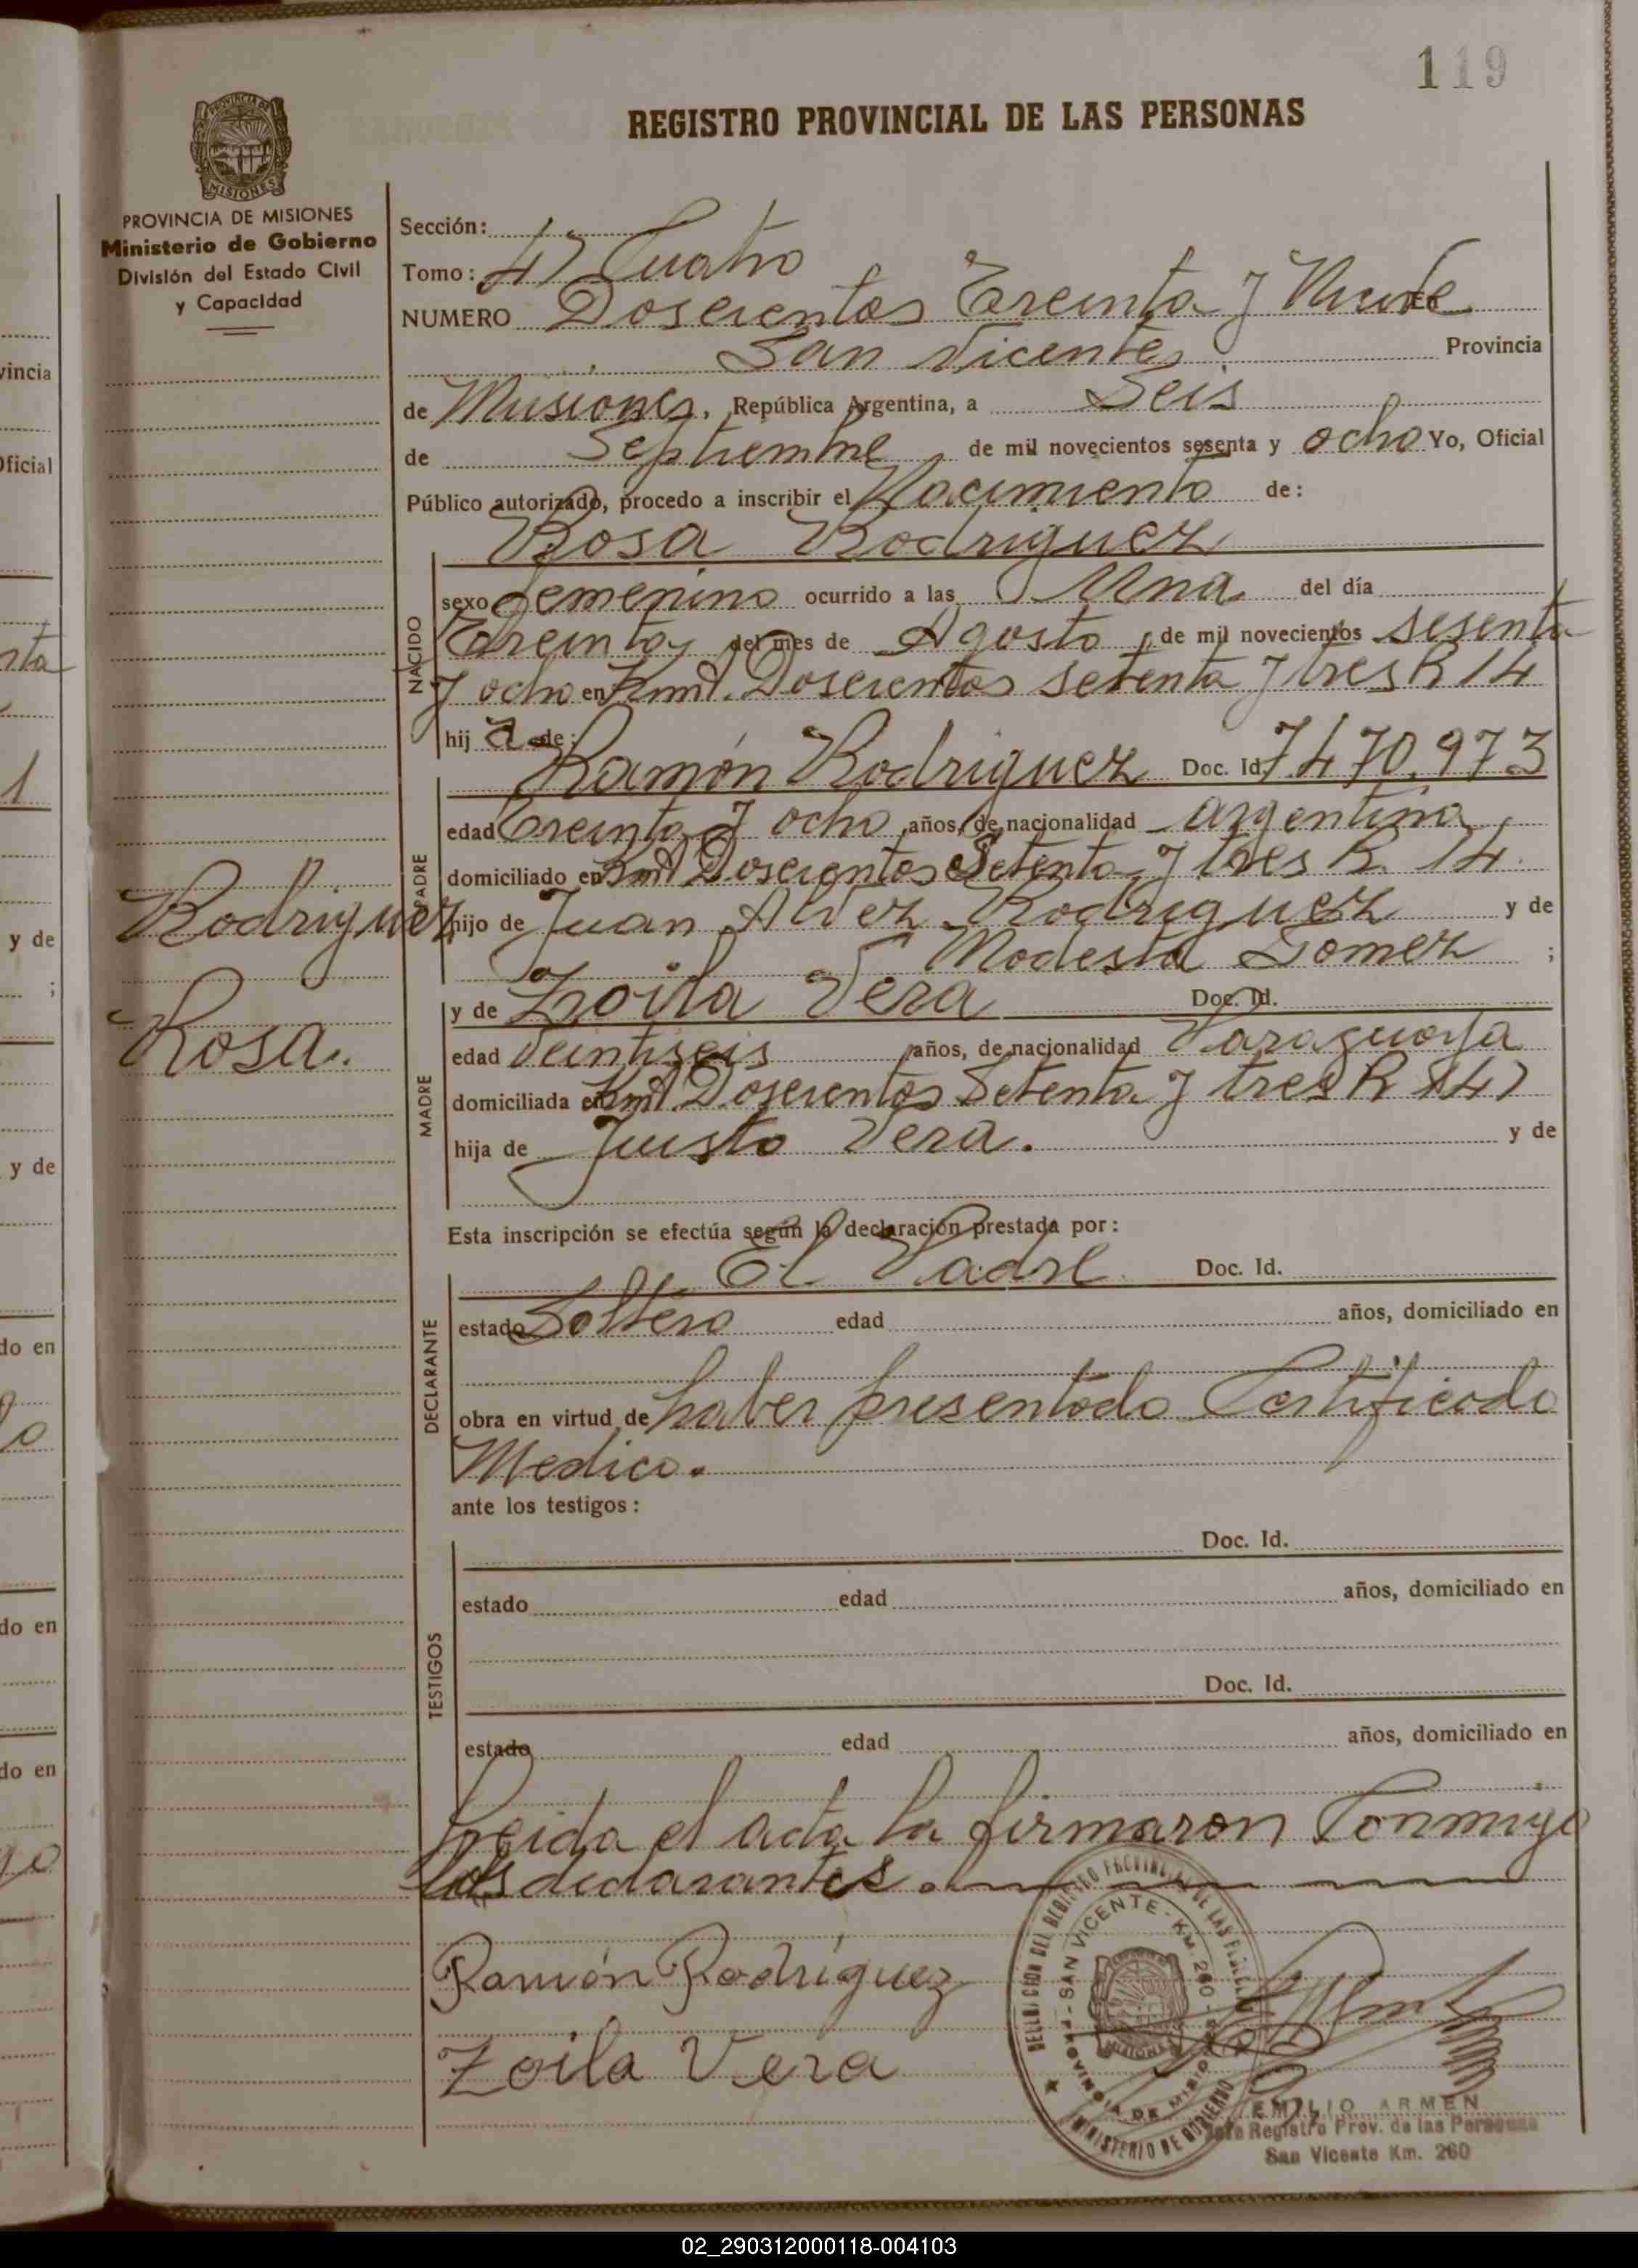 119
REGISTRO PROVINCIAL DE LAS PERSONAS
PROVINCIA DE MISIONES
Ministerio de Gobierno
División del Estado Civil
y Capacidad
Sección:
Tomo: 4) Cuatro
NUMERO Doscientos Treinta y Nueve En
San Vicente, Provincia
de Misiones, República Argentina, a Seis
de Septiembre de mil novecientos sesenta y ocho Yo, Oficial
Público autorizado, procedo a inscribir el Nacimiento de:
Rosa Rodriguez
NACIDO
sexo femenino ocurrido a las Una del día
Treinta, del mes de Agosto, de mil novecientos sesenta
y ocho en Kmt. Doscientos setenta y tres R 14
hij a de:
Ramón Rodriguez Doc. Id. 7.470.973
PADRE
edad Treinta y ocho años, de nacionalidad argentina
domiciliado en Kmt Doscientos Setenta y tres R. 14.
Rodriguez
hijo de Juan Alvez Rodriguez y de
Modesta Gomez ;
Rosa.
y de Zoila Vera Doc. Id.
MADRE
edad Veintiseis años, de nacionalidad Paraguaya
domiciliada en Kmt Doscientos Setenta y tres R 14)
hija de Justo Vera. y de
Esta inscripción se efectúa según la declaración prestada por:
El Padre Doc. Id.
DECLARANTE
estado Soltero edad años, domiciliado en
obra en virtud de haber presentado Certificado
Medico.
ante los testigos:
TESTIGOS
Doc. Id.
estado edad años, domiciliado en
Doc. Id.
estado edad años, domiciliado en
Leida el acta la firmaron Conmigo
los declarantes.
Ramón Rodríguez
Zoila Vera
SAN VICENTE - KM. 260 - PROVINCIA DE MISIONES
MINISTERIO DE GOBIERNO
EMILIO ARMEN
Jefe Registro Prov. de las Personas
San Vicente Km. 260
vincia
Oficial
nta
1
y de
;
y de
do en
o
do en
do en
02_290312000118-004103